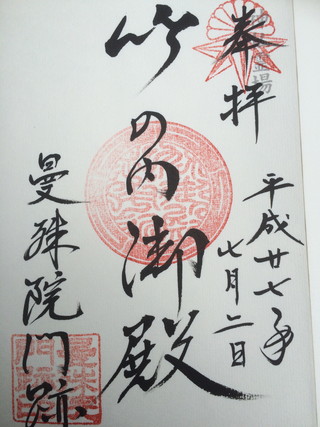 奉拝
霊場
平成廿七年
七月二日
竹の内御殿
曼殊院門跡